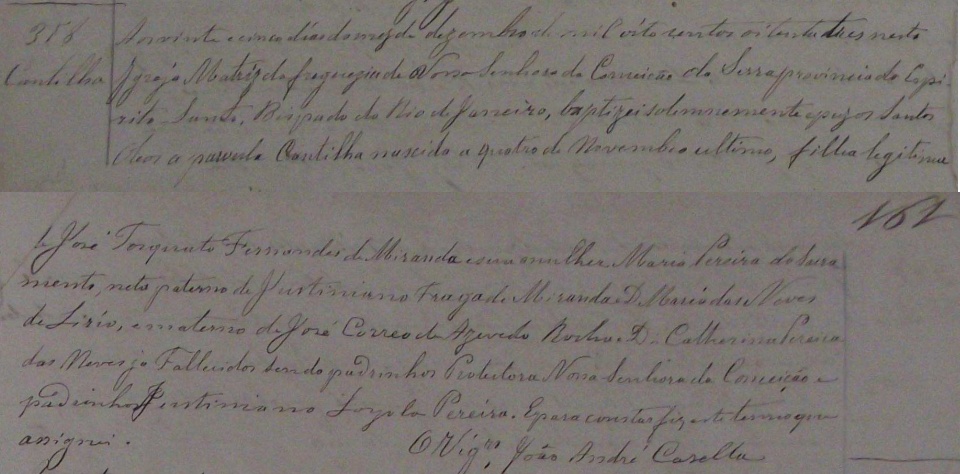 358
Cantilha
Aos vinte e cinco dias do mez de dezembro de mil oito centos oitenta e tres nesta
Igreja Matriz da freguezia de Nossa Senhora da Conceição da Serra provincia do Espi-
rito Santo, Bispado do Rio de Janeiro, baptizei solemnemente e puz os Santos
Oleos a parvula Cantilha nascida a quatro de Novembro ultimo, filha legitima
161
de José Torquato Fernandes de Miranda e sua mulher Maria Pereira do Sacra
mento, neta paterno de Justiniano Fraga de Miranda e D. Maria das Neves
de Lirio, e materno de José Correa de Azevedo Rocha e D. Catherina Pereira
das Neves ja Fallecidos sendo padrinhos Protectora Nossa Senhora da Conceição e
padrinho Justiniano Loyola Pereira. E para constar fiz este termo que
assignei.
O Vigro, João André Casella